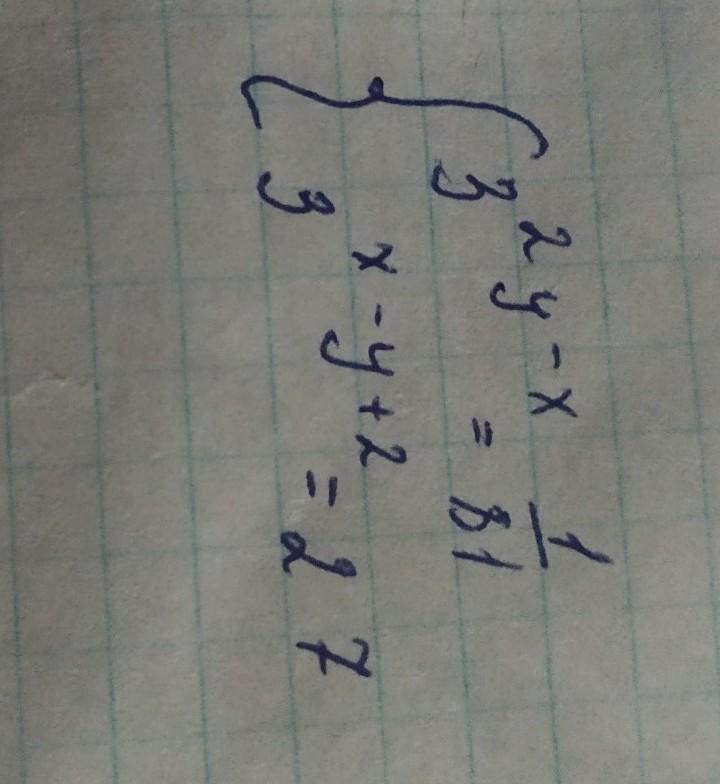 3^{2y-x} = \frac{1}{81}
3^{x-y+2} = 27